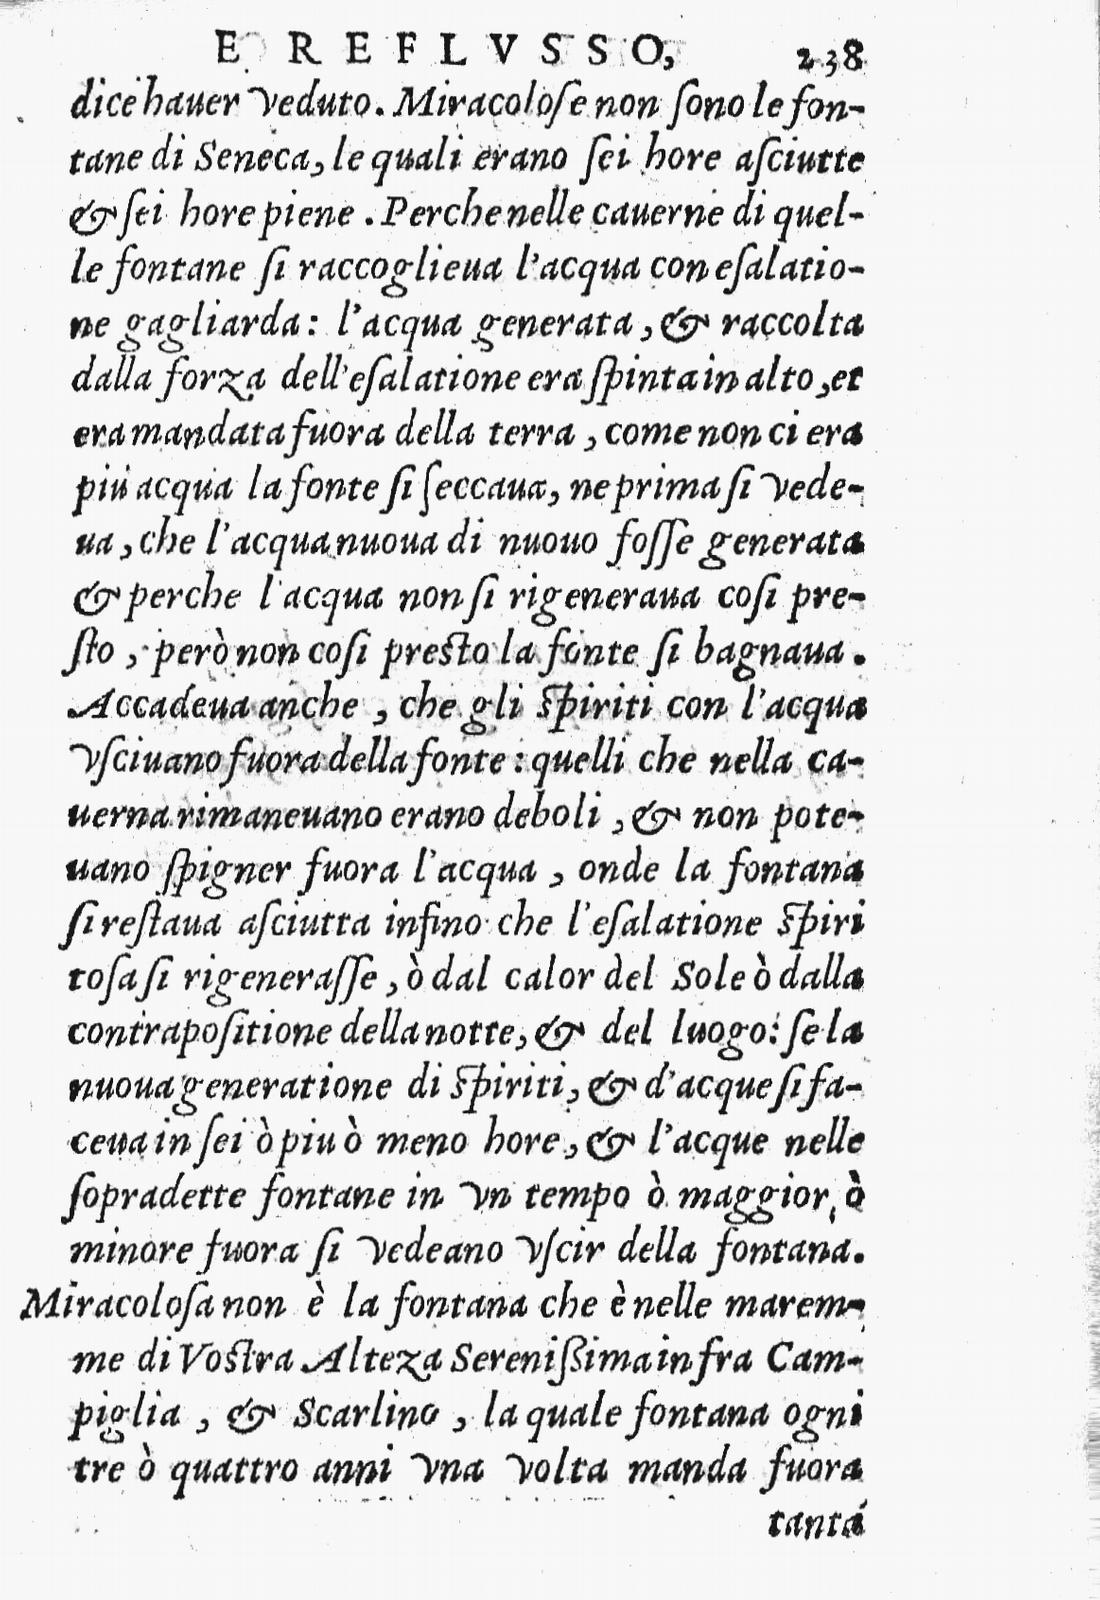 E REFLVSSO, 238
dice hauer veduto. Miracoloſe non ſono le fon-
tane di Seneca, le quali erano ſei hore aſciutte
& ſei hore piene. Perche nelle cauerne di quel-
le fontane ſi raccoglieua l'acqua con eſalatio-
ne gagliarda: l'acqua generata, & raccolta
dalla forza dell'eſalatione era ſpinta in alto, et
era mandata fuora della terra, come non ci era
piu acqua la fonte ſi ſeccaua, ne prima ſi vede-
ua, che l'acqua nuoua di nuouo foſſe generata
& perche l'acqua non ſi rigeneraua coſi pre-
ſto, però non coſi preſto la fonte ſi bagnaua.
Accadeua anche, che gli ſpiriti con l'acqua
vſciuano fuora della fonte: quelli che nella ca-
uerna rimaneuano erano deboli, & non pote-
uano ſpigner fuora l'acqua, onde la fontana
ſi reſtaua aſciutta infino che l'eſalatione ſpiri
toſa ſi rigeneraſſe, ò dal calor del Sole ò dalla
contrapoſitione della notte, & del luogo: ſe la
nuoua generatione di ſpiriti, & d'acque ſi fa-
ceua in ſei ò piu ò meno hore, & l'acque nelle
ſopradette fontane in vn tempo ò maggior, ò
minore fuora ſi vedeano vſcir della fontana.
Miracoloſa non è la fontana che è nelle marem-
me di Voſtra Alteza Sereniſsima infra Cam-
piglia, & Scarlino, la quale fontana ogni
tre ò quattro anni vna volta manda fuora
tanta